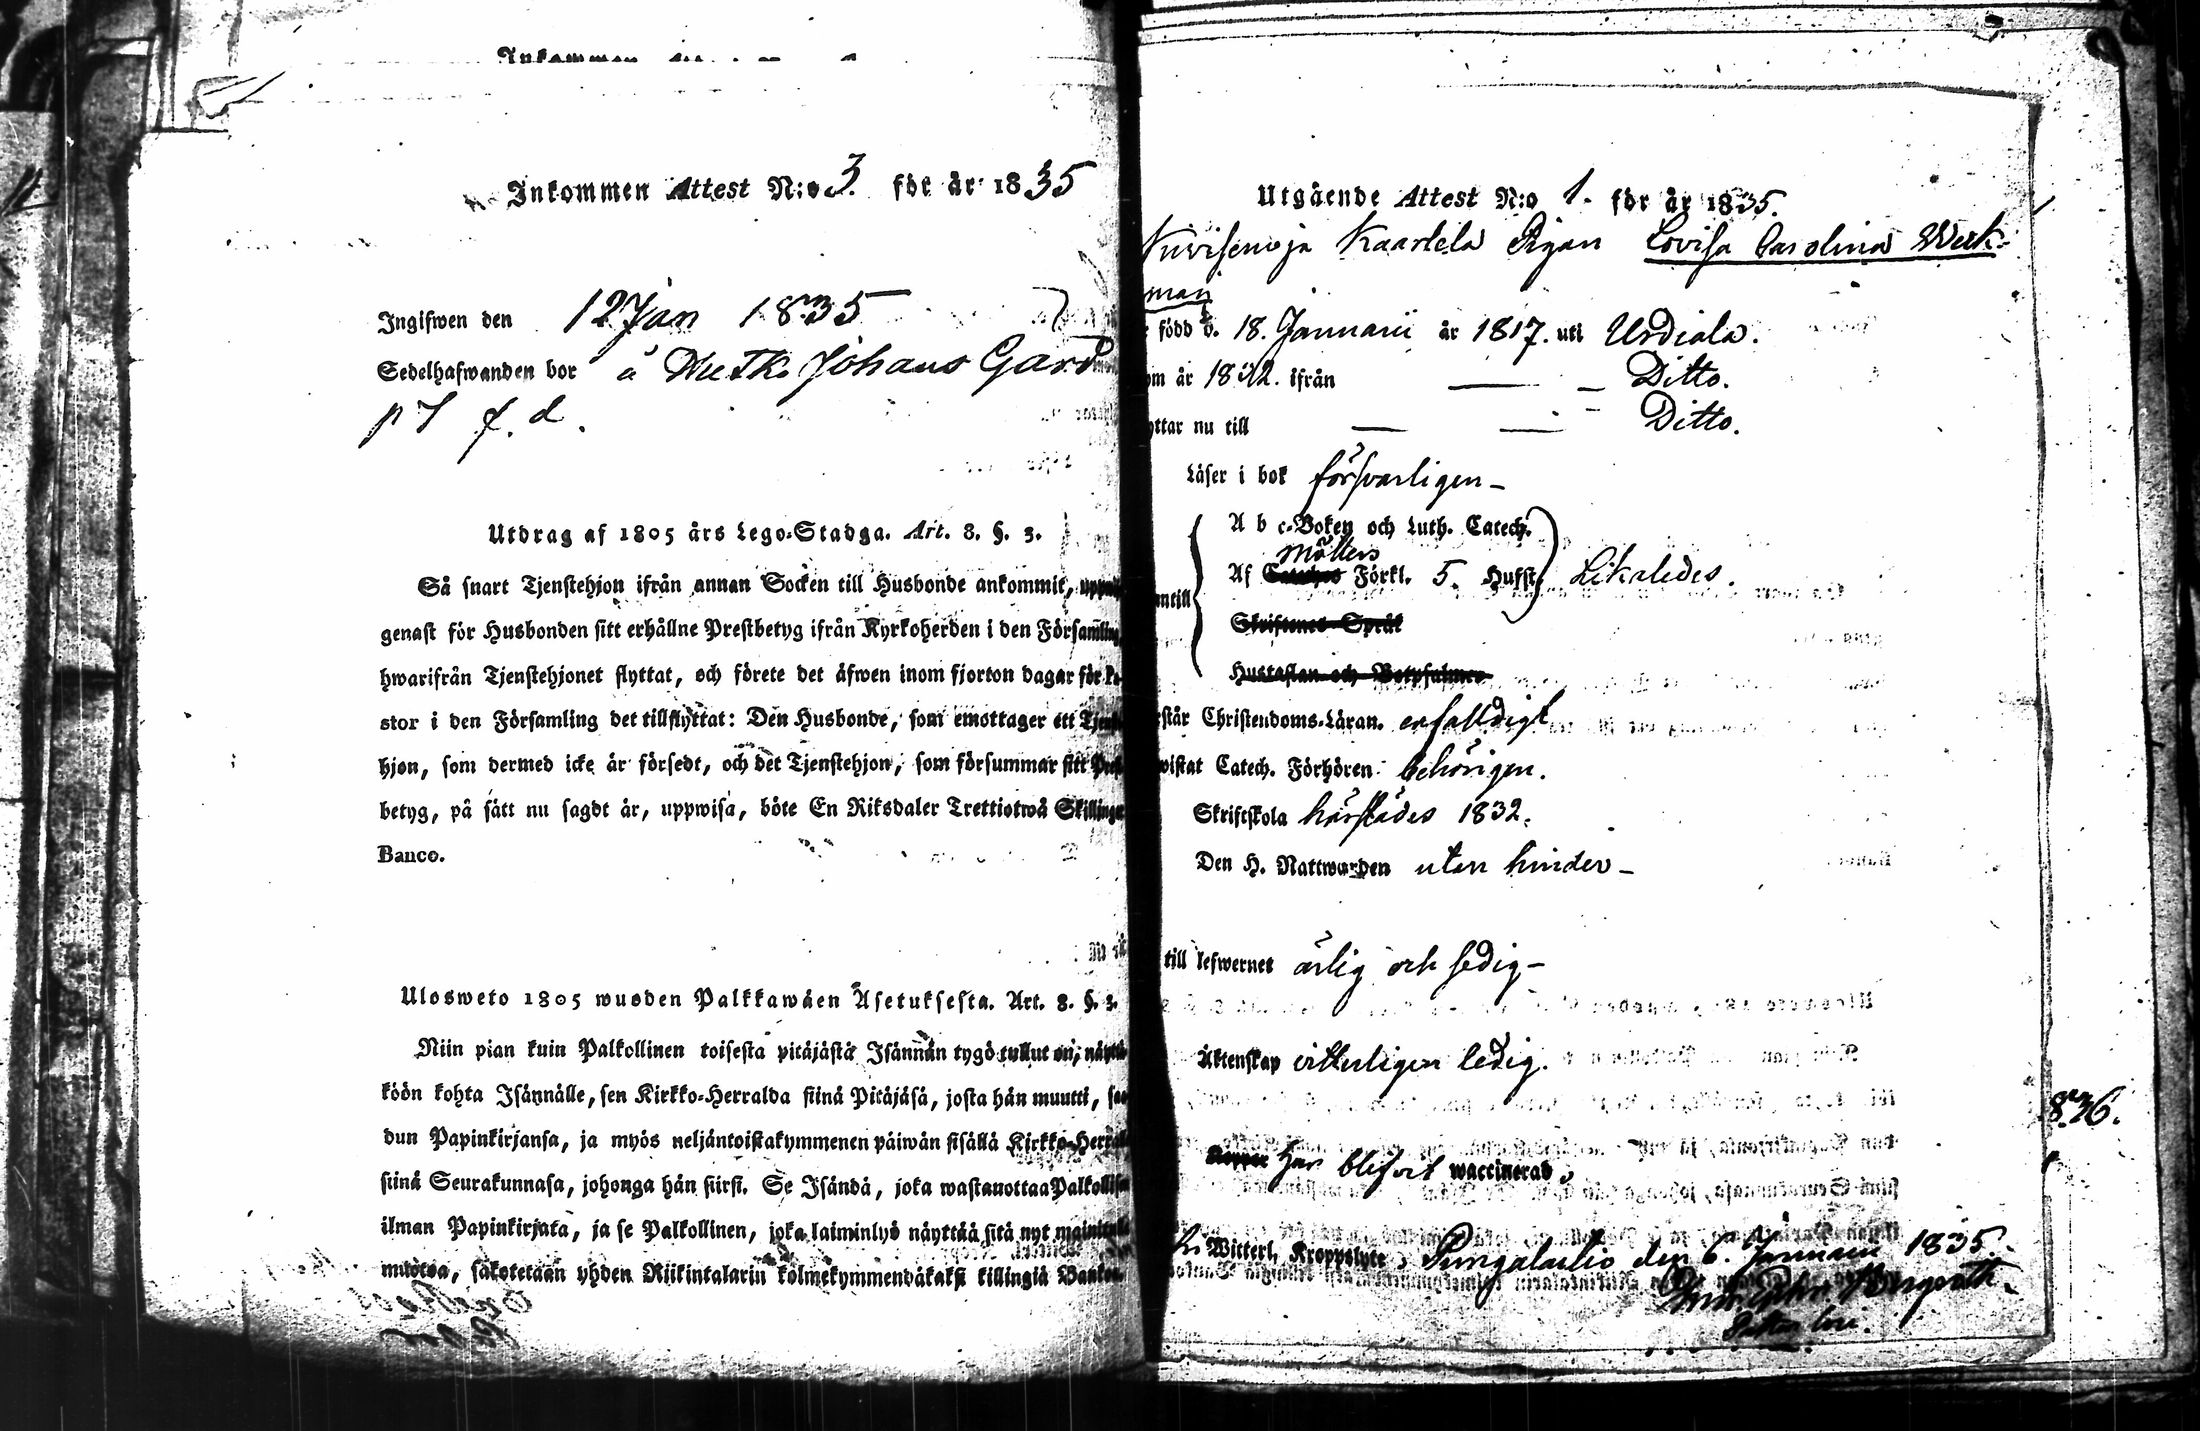 Inkommen Attest N:o 3. för år 1835
Ingifwen den 12 Jan 1835
Sedelhafwanden bor å Johans Gård
f. d.
Utdrag af 1805 års Lego-Stadga. Art. 8. §. 3.
Så snart Tjenstehjon ifrån annan Socken till Husbonde ankommit,
genast för Husbonden sitt erhållne Prestbetyg ifrån Kyrkoherden i den Församling
hwarifrån Tjenstehjonet flyttat, och förete det äfwen inom fjorton dagar för
stor i den Församling det tillflyttat: Den Husbonde, som emottager ett Tjen
hjon, som dermed icke är försedt, och det Tjenstehjon, som försummar sitt Pre
betyg, på sätt nu sagdt är, uppwisa, böte En Riksdaler Trettiotwå Skillingar
Banco.
Ulosweto 1805 wuoden Palkkawäen Asetuksesta. Art. 8. §. 3.
Niin pian kuin Palkollinen toisesta pitäjästä Isännän tygö tullut on, näyttä
köön kohta Isännälle, sen Kirkko-Herralda siinä Pitäjäsä, josta hän muutti, saa
dun Papinkirjansa, ja myös neljäntoistakymmenen päiwän sisällä Kirkko-Herral
siinä Seurakunnasa, johonga hän siirsi. Se Isändä, joka wastanottaa Palkollisen
ilman Papinkirjata, ja se Palkollinen, joka laiminlyö näyttää sitä nyt mainitulla
muotoa, sakotetaan yhden Riikintalarin kolmekymmendäkaksi killingiä Bankos.
Utgående Attest N:o 1. för år 1835.
Kaartela Pigan Lovisa Carolina Weck-
man
född d. 18. Januarii år 1817. uti Urdiala.
om år 1832. ifrån — – Ditto.
yttar nu till — — Ditto.
Läser i bok försvarligen –
A b c-Boken och Luth. Catech.
Möllers
Af Förkl. 5. Hufst. Likaledes.
antill
Skriftenes Språk
Hustaflan och Botpsalmer
rstår Christendoms-Läran. enfaldigt
wistat Catech. Förhören behörigen.
Skriftskola härstädes 1832.
Den H. Nattwarden utan hinder –
till lefwernet ärlig och sedig –
Äktenskap vitterligen ledig.
Har blifvit waccinerad,
Witterl. Kroppslyte, Pungalaitio den 6. Januarii 1835.
836.